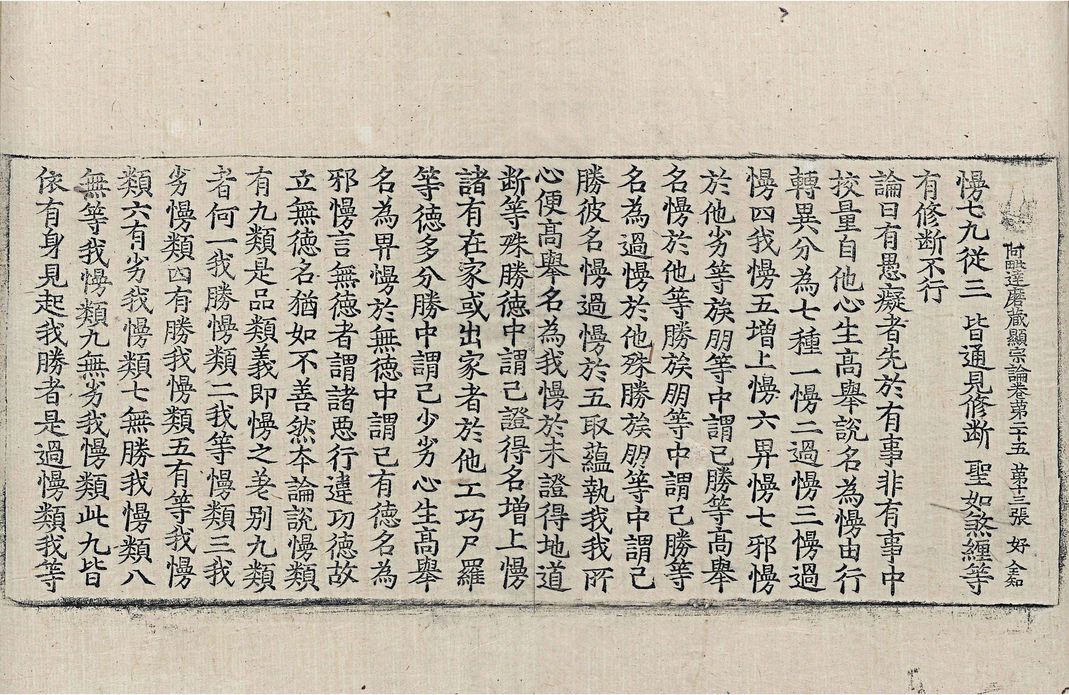 阿毗達磨藏顯宗論卷第二十五 第十三張 好 仝知
慢七九從三 皆通見修斷 聖如煞纏等
有修斷不行
論曰有愚癡者先於有事非有事中
挍量自他心生髙舉說名為慢由行
轉異分為七種一慢二過慢三慢過
慢四我慢五增上慢六畀慢七邪慢
於他劣等族朋等中謂己勝等髙舉
名慢於他等勝族朋等中謂己勝等
名為過慢於他殊勝族朋等中謂己
勝彼名慢過慢於五取蘊執我我所
心便髙舉名為我慢於未證得地道
断等殊勝德中謂己證得名增上慢
諸有在家或出家者於他工巧尸羅
等德多分勝中謂己少劣心生髙舉
名為畀慢於無德中謂己有德名為
邪慢言無德者謂諸惡行違功德故
立無德名猶如不善然夲論說慢類
有九類是品類義即慢之差別九類
者何一我勝慢類二我等慢類三我
劣慢類四有勝我慢類五有等我慢
類六有劣我慢類七無勝我慢類八
無等我慢類九無劣我慢類此九皆
依有身見起我勝者是過慢類我等